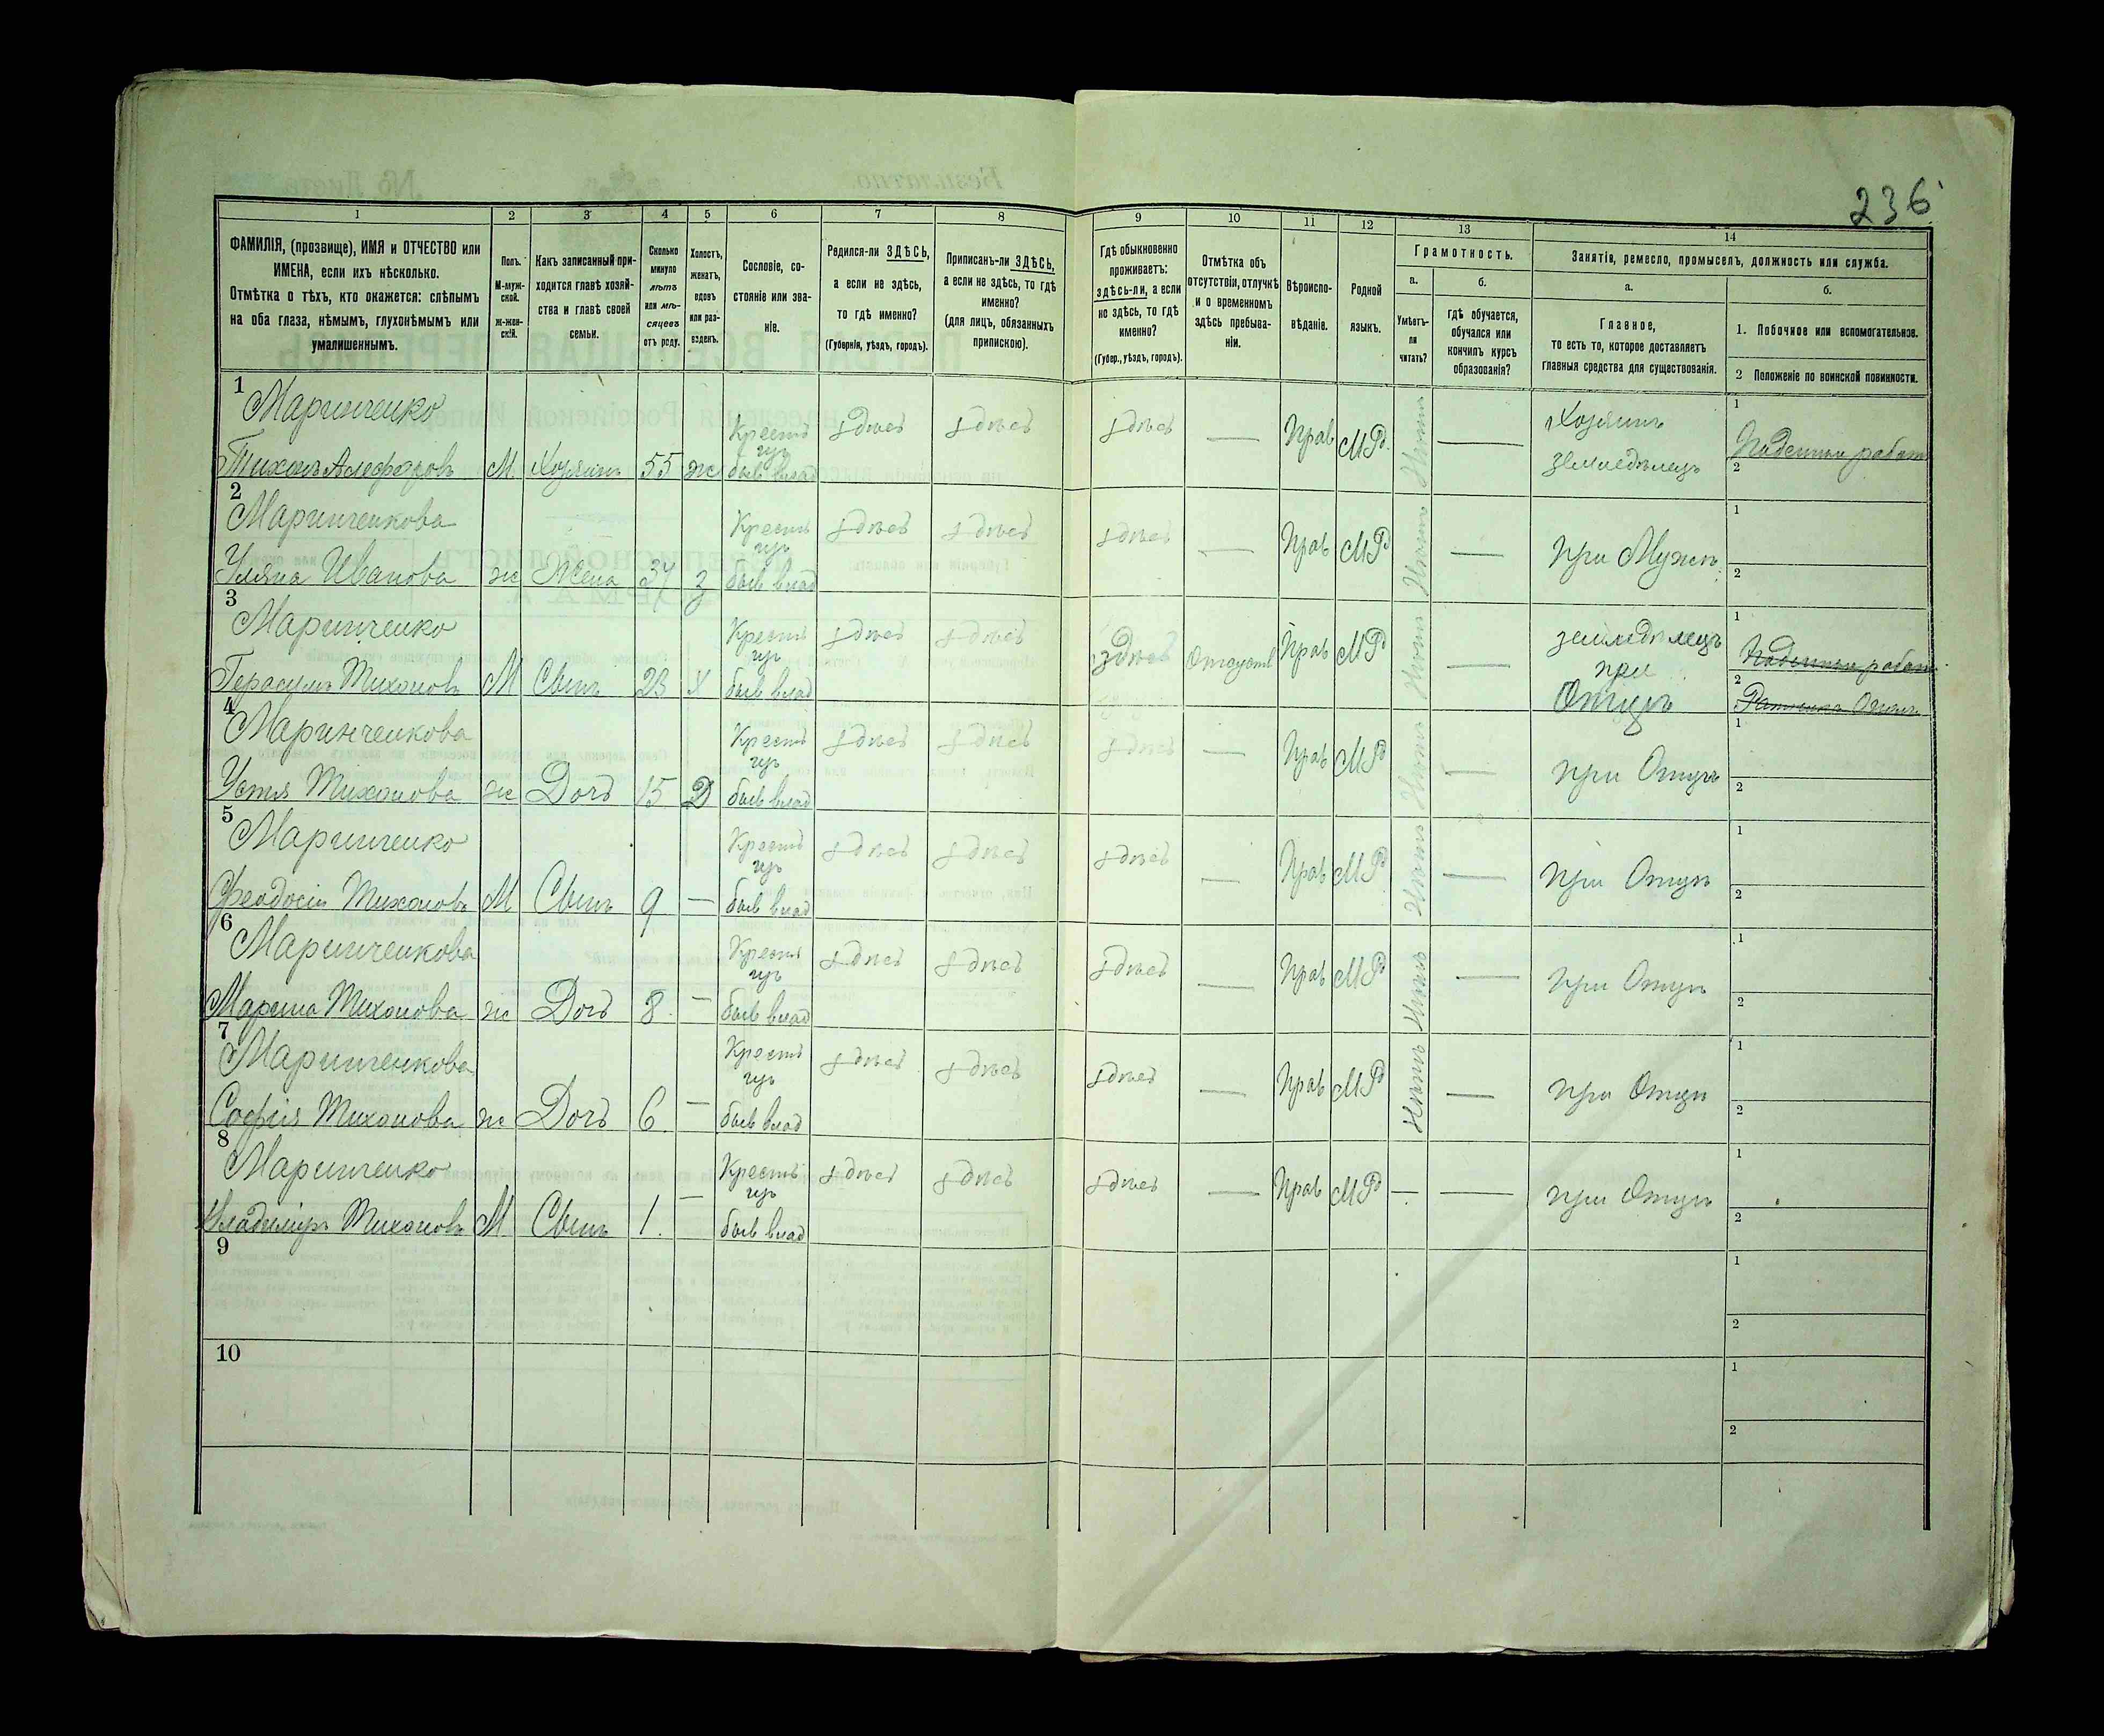 236
1 2 3 4 5 6 7 8 9 10 11 12 13 14
ФАМИЛІЯ, (прозвище), ИМЯ и ОТЧЕСТВО или
ИМЕНА, если ихъ нѣсколько.
Отмѣтка о тѣхъ, кто окажется: слѣпымъ
на оба глаза, нѣмымъ, глухонѣмымъ или
умалишеннымъ.
Полъ.
М-муж-
ской.
ж-жен-
скій.
Какъ записанный при-
ходится главѣ хозяй-
ства и главѣ своей
семьи.
Сколько
минуло
лѣтъ
или мѣ-
сяцевъ
отъ роду.
Холостъ,
женатъ,
вдовъ
или раз-
веденъ.
Сословіе, со-
стояніе или зва-
ніе.
Родился-ли ЗДѢСЬ,
а если не здѣсь,
то гдѣ именно?
(Губернія, уѣздъ, городъ).
Приписанъ-ли ЗДѢСЬ,
а если не здѣсь, то гдѣ
именно?
(для лицъ, обязанныхъ
припискою).
Гдѣ обыкновенно
проживаетъ:
здѣсь-ли, а если
не здѣсь, то гдѣ
именно?
(Губер., уѣздъ, городъ).
Отмѣтка объ
отсутствіи, отлучкѣ
и о временномъ
здѣсь пребыва-
ніи.
Вѣроиспо-
вѣданіе.
Родной
языкъ.
Грамотность.
а.
Умѣетъ-
ли
читать?
б.
гдѣ обучается,
обучался или
кончилъ курсъ
образованія?
Занятія, ремесло, промыселъ, должность или служба.
а.
Главное,
то есть то, которое доставляетъ
главныя средства для существованія.
б.
1. Побочное или вспомогательное.
2 Положеніе по воинской повинности.
1 Маринченко
Тихонъ М Хозяинъ 55 ж Крестъ
изъ
бывъ влад здѣсь здѣсь здѣсь — Прав МРо Нѣтъ — Хозяинъ
земледѣлецъ 1 Поденныи работ
2
2 Маринченкова
Уляна Иванова ж Жена 37 з Крестъ
изъ
бывъ влад здѣсь здѣсь здѣсь — Прав МРо Нѣтъ — при Мужѣ 1
2
3 Маринченко
Герасимъ Тихоновъ М Сынъ 23 х Крестъ
изъ
бывъ влад здѣсь здѣсь здѣсь Отсутств Прав МРо Нѣтъ — земледѣлецъ
при
Отцѣ 1 Поденныи работ
2 Ратникъ Опол
4 Маринченкова
Устя Тихонова ж Дочь 15 Д Крестъ
изъ
бывъ влад здѣсь здѣсь здѣсь — Прав МРо Нѣтъ — при Отцѣ 1
2
5 Маринченко
Феодосіи Тихоновъ М Сынъ 9 — Крестъ
изъ
бывъ влад здѣсь здѣсь здѣсь — Прав МРо Нѣтъ — при Отцѣ 1
2
6 Маринченкова
Марина Тихонова ж Дочь 8 — Крестъ
изъ
бывъ влад здѣсь здѣсь здѣсь — Прав МРо Нѣтъ — при Отцѣ 1
2
7 Маринченкова
Софія Тихонова ж Дочь 6 — Крестъ
изъ
бывъ влад здѣсь здѣсь здѣсь — Прав МРо Нѣтъ — при Отцѣ 1
2
8 Маринченко
Владиміръ Тихоновъ М Сынъ 1. — Крестъ
изъ
бывъ влад здѣсь здѣсь здѣсь — Прав МРо — — при Отцѣ 1
2
9 1
2
10 1
2